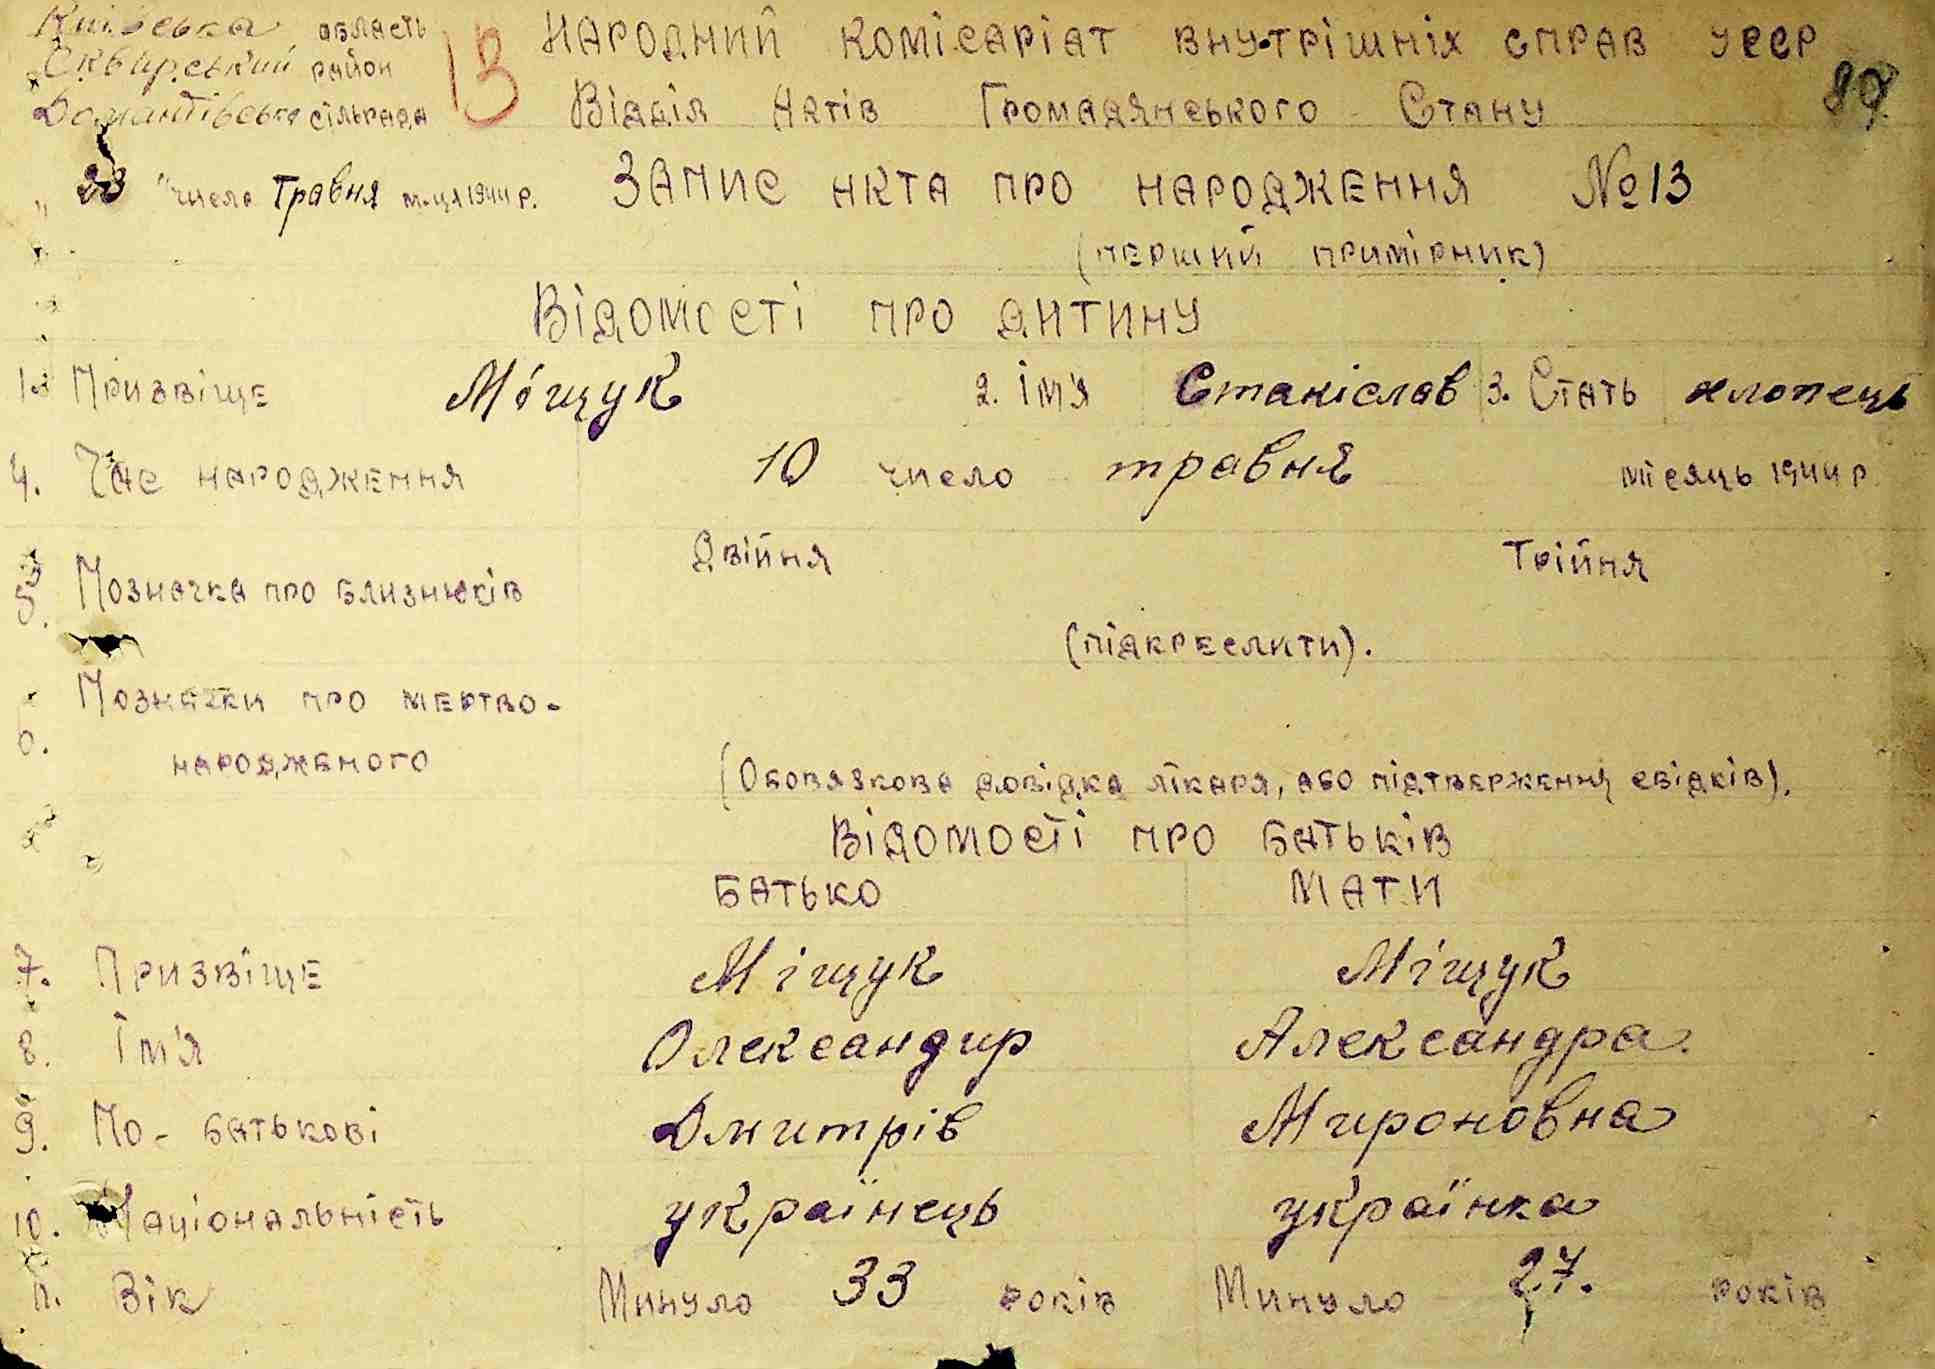 Київська область
Сквирський район
Домантівська сільрада
13
Народний комісаріат внутрішніх справ УССР
89
Відділ Актів Громадянського Стану
"23" числа Травня м-ця 1944 р.
Запис акта про народження №13
(перший примірник)
Відомості про дитину
1. Призвіще Міщук 2. Ім'я Станіслав 3. Стать хлопець
4. Час народження 10 число травня місяць 1944 р
Двійня Трійня
5. Позначка про близнюків
(підкреслити).
6. Позначки про мертво-
народженого
(Обовязкова довідка лікаря, або підтверження свідків).
Відомості про батьків
Батько Мати
7. Призвіще Міщук Міщук
8. Ім'я Олександир Александра.
9. По-батькові Дмитрів Мироновна
10. Національність українець українка
11. Вік Минуло 33 років Минуло 27. років